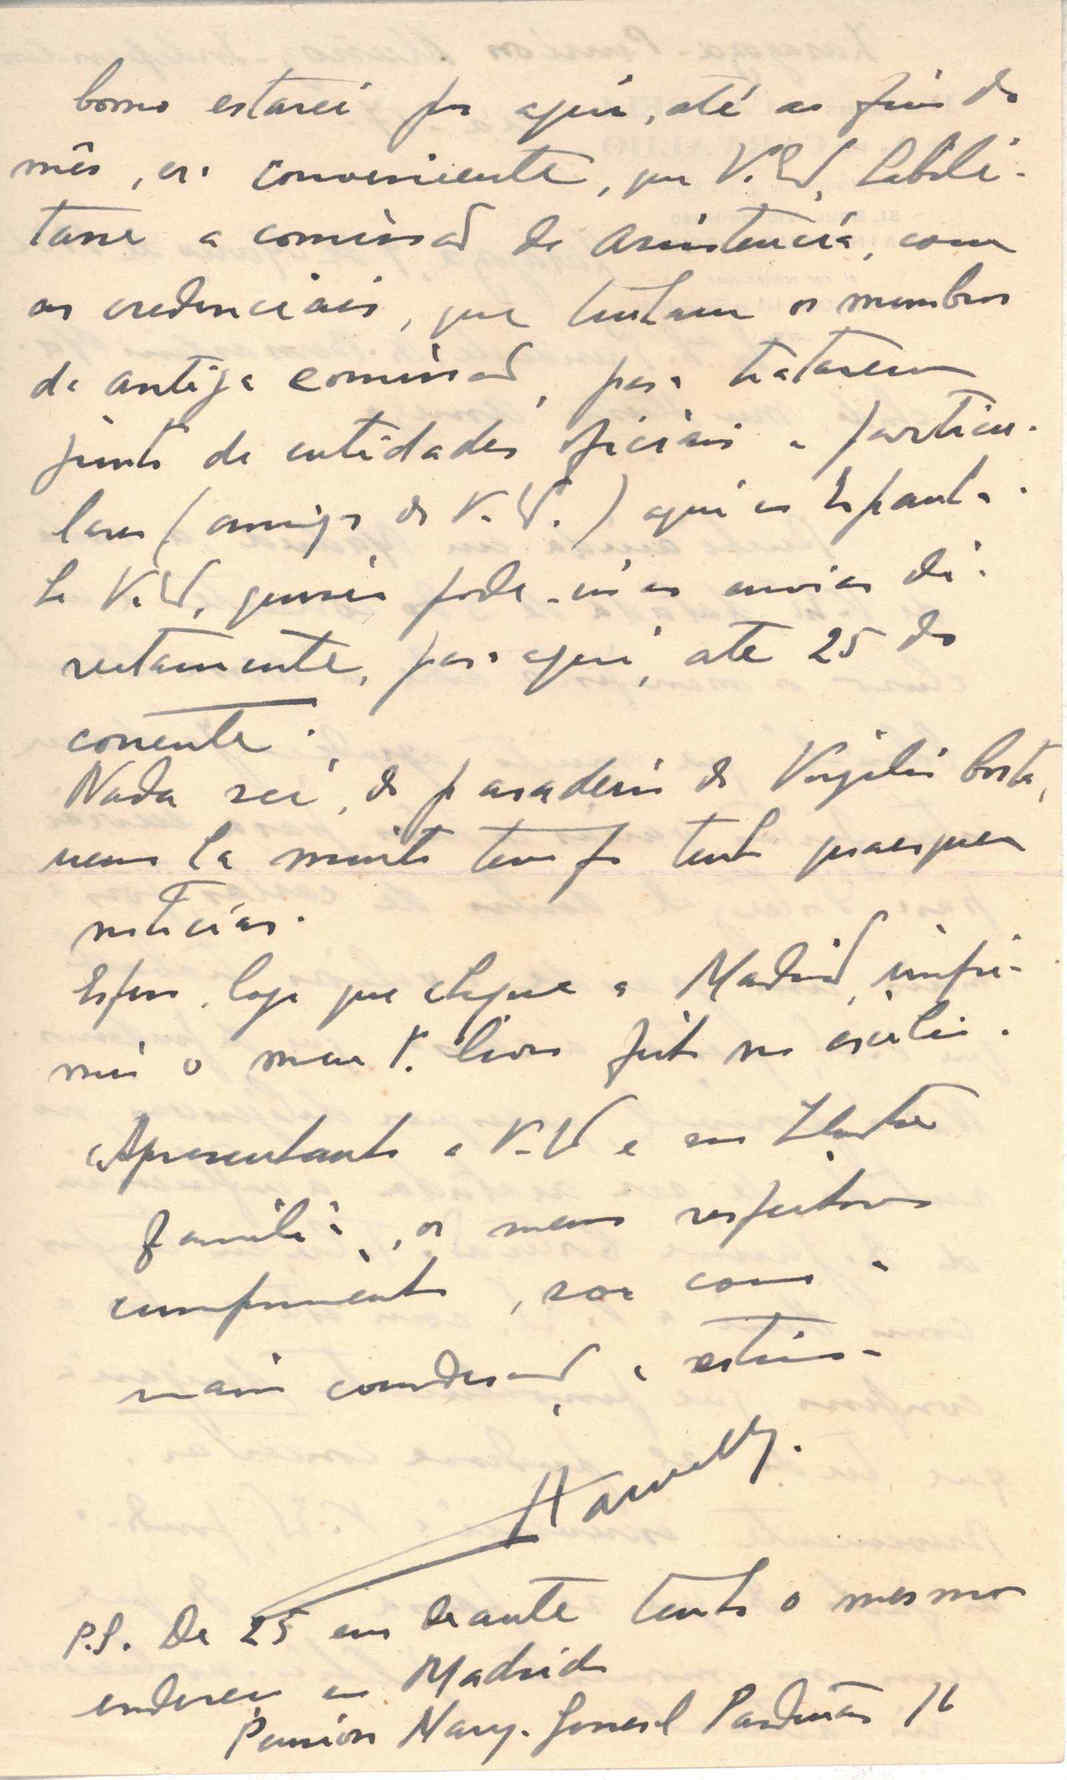 Como estarei por aqui, até ao fim do
mês, era conveniente, que V. Ex.ª habili-
tasse a comissão de Assistencia, com
as credenciais, que tinham os membros
da antiga comissão, para tratarem
junto de entidades oficiais e particu-
lares (amigos de V. Ex.ª) aqui em Espanha.
Se V. Ex.ª quiser pode-m'as enviar di-
rectamente, para aqui, até 25 do
corrente.
Nada sei, do paradeiro de Virgilio Costa,
nem ha muito tempo tenho quaesquer
noticias.
Espero, logo que chegue a Madrid, impri-
mir o meu 1.º livro feito no exilio.
Apresentando a V. Ex.ª e sua Ilustre
Familia, os meus respeitosos
cumprimentos, sou com a
maior consideração e estima
P.S. De 25 em deante tenho o mesmo
endereço em Madrid
Pension Nary. General Pardiñas 16